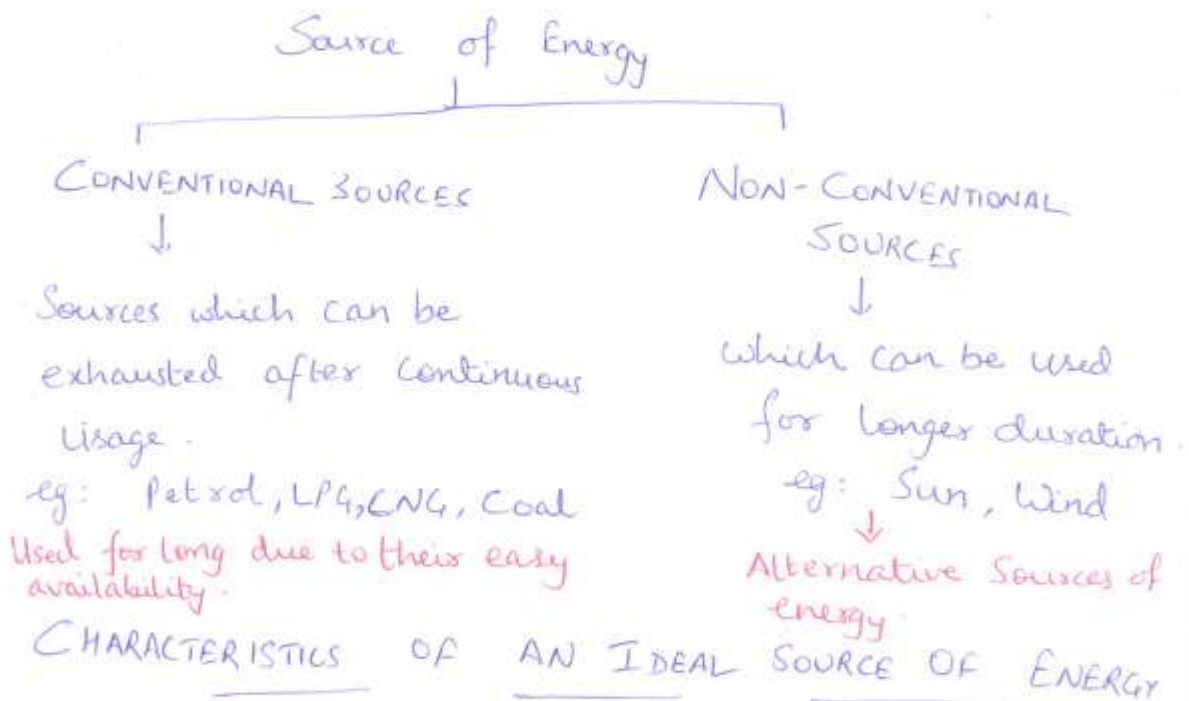 Source of Energy
CONVENTIONAL SOURCES
↓
Sources which can be
exhausted after continuous
usage.
eg: Petrol, LPG, CNG, Coal
Used for long due to their easy
availability.
NON-CONVENTIONAL
SOURCES
↓
which can be used
for longer duration.
eg: Sun, Wind
↓
Alternative Sources of
energy.
CHARACTERISTICS OF AN IDEAL SOURCE OF ENERGY